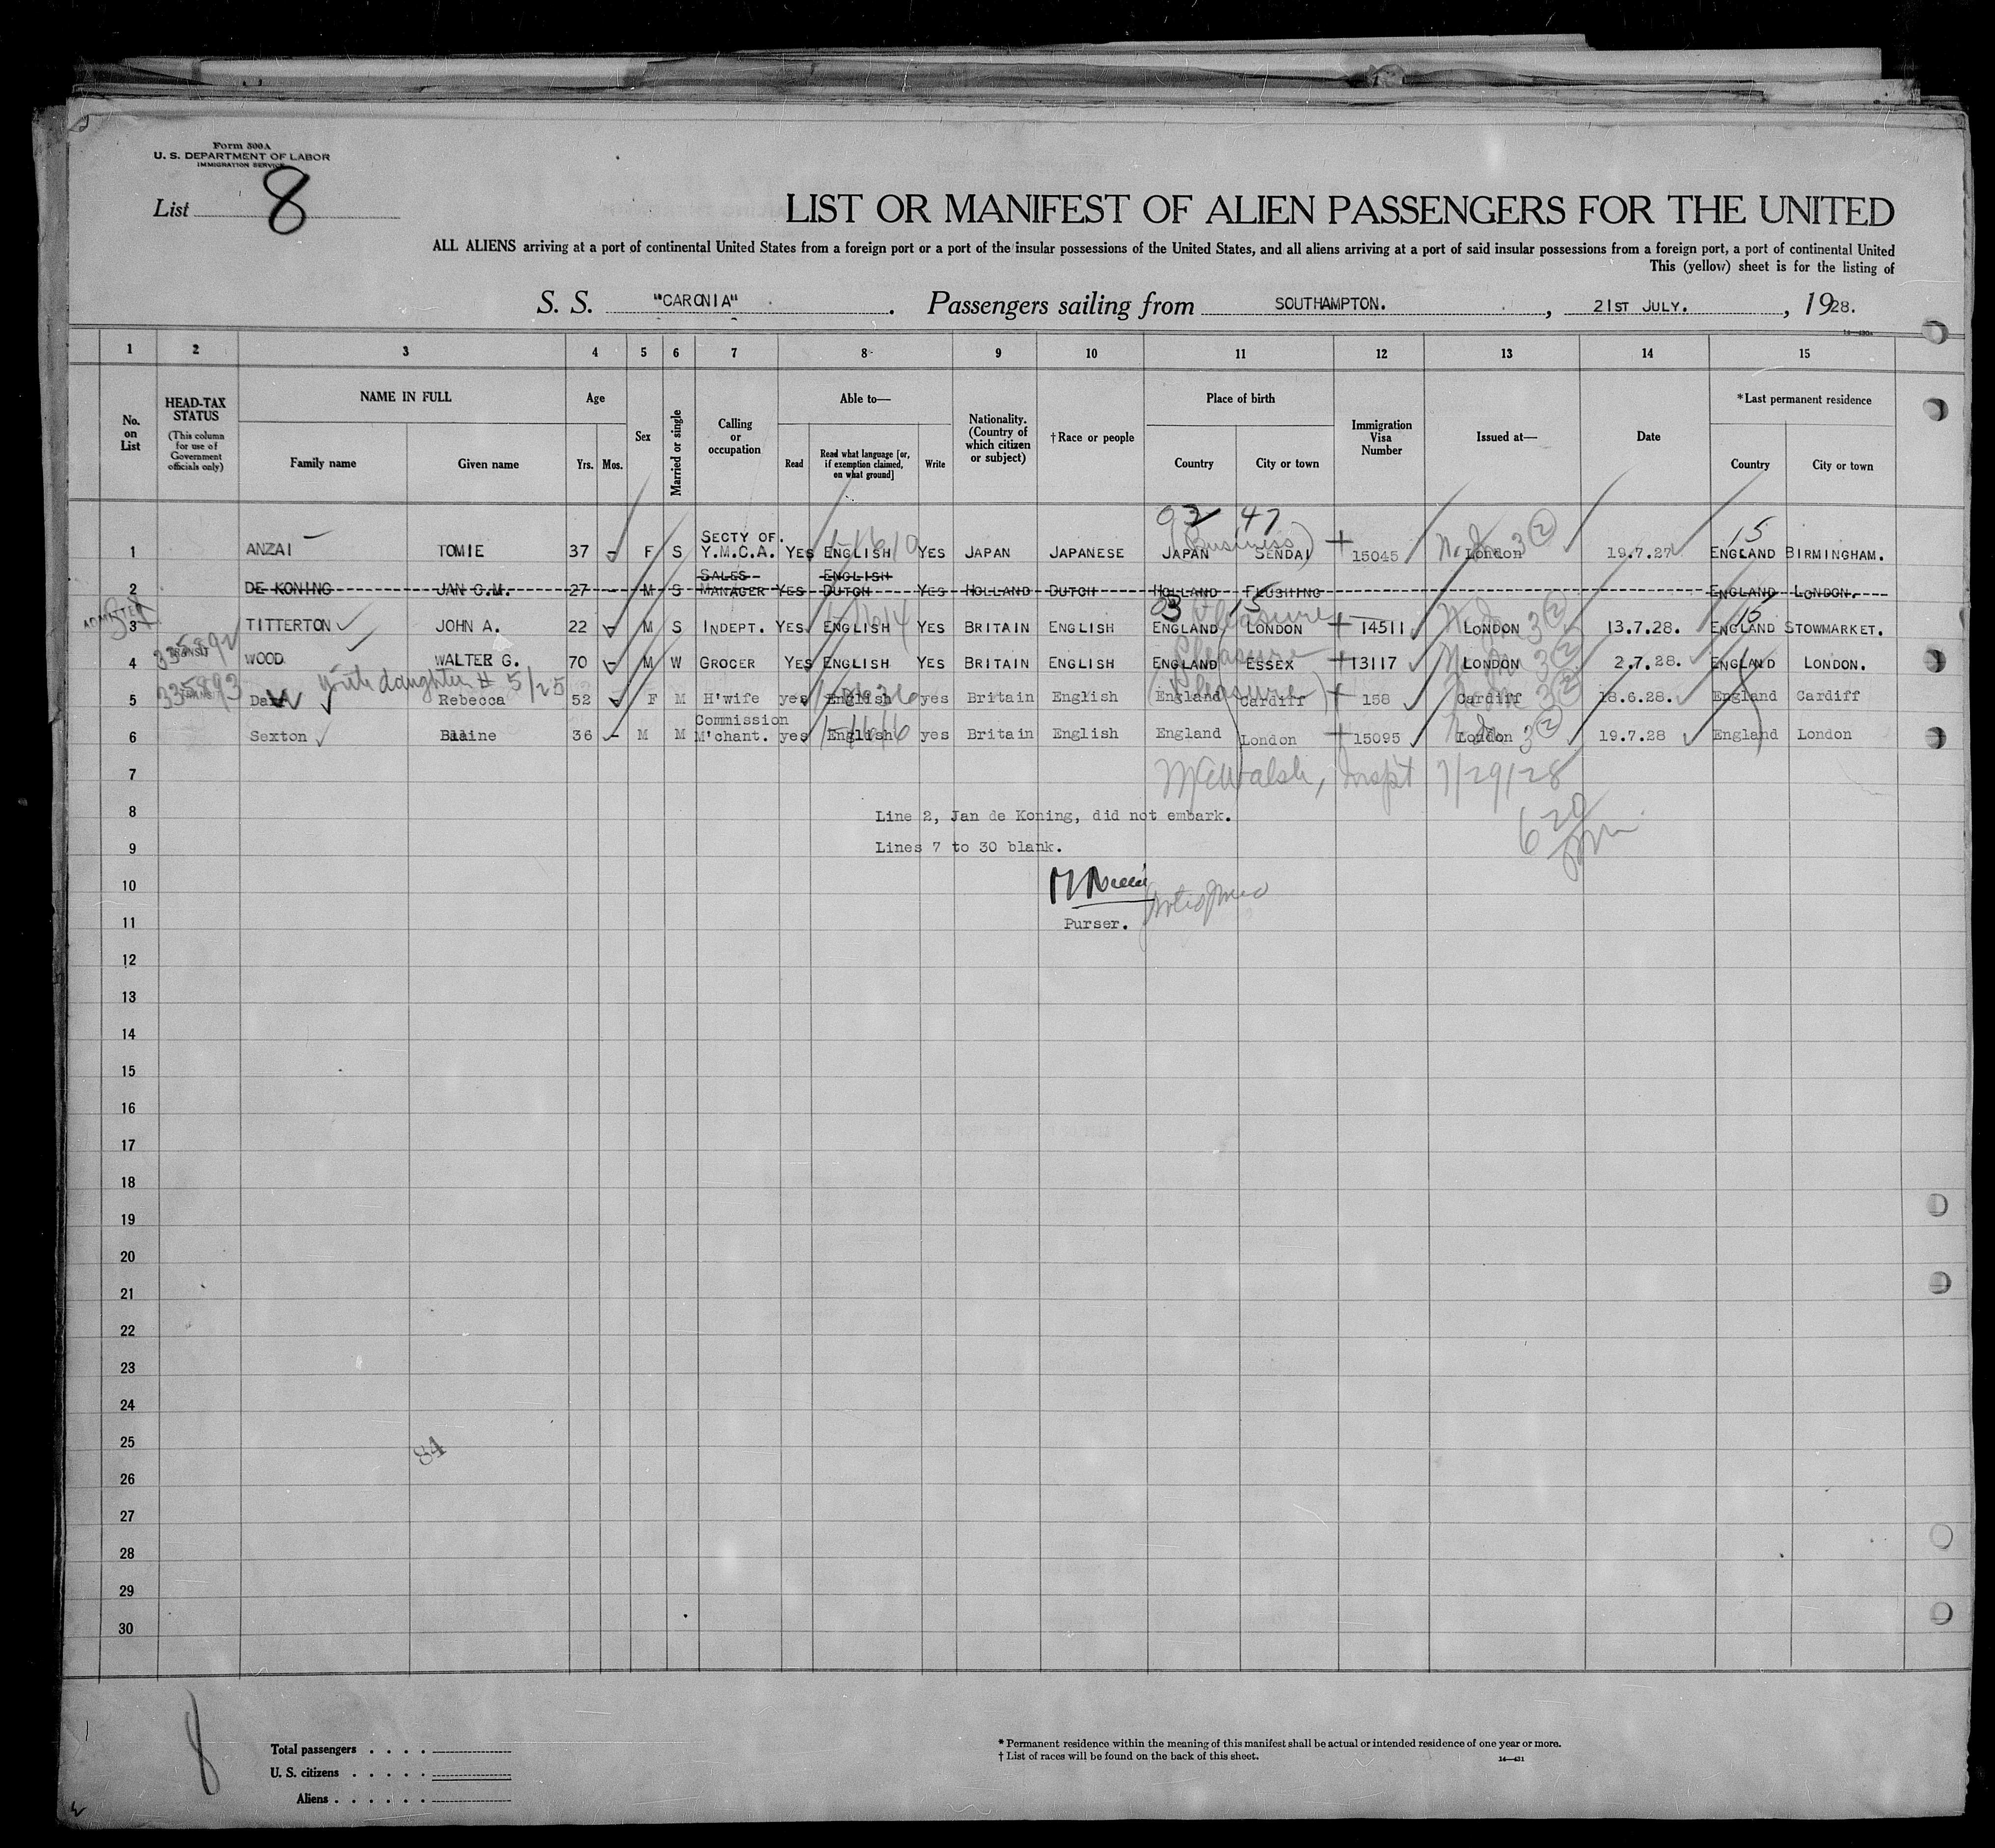 Form 500A
U. S. DEPARTMENT OF LABOR
IMMIGRATION SERVICE
List 8
LIST OR MANIFEST OF ALIEN PASSENGERS FOR THE UNITED
ALL ALIENS arriving at a port of continental United States from a foreign port or a port of the insular possessions of the United States, and all aliens arriving at a port of said insular possessions from a foreign port, a port of continental United
This (yellow) sheet is for the listing of
S. S. "CARONIA". Passengers sailing from SOUTHAMPTON., 21ST JULY., 1928.
1 2 3 4 5 6 7 8 9 10 11 12 13 14 15
No. on List
HEAD-TAX STATUS
(This column for use of Government officials only)
NAME IN FULL
Family name Given name
Age
Yrs. Mos.
Sex
Married or single
Calling or occupation
Able to—
Read Read what language [or, if exemption claimed, on what ground] Write
Nationality. (Country of which citizen or subject)
†Race or people
Place of birth
Country City or town
Immigration Visa Number
Issued at—
Date
*Last permanent residence
Country City or town
03 47 15
1 ANZAI TOMIE 37 - F S SECTY OF. Y.M.C.A. YES ENGLISH YES JAPAN JAPANESE JAPAN SENDAI (Business) 15045 London 3 (2) 19.7.27 ENGLAND BIRMINGHAM.
2 DE KONING JAN G.M. 27 - M S SALES MANAGER YES ENGLISH DUTCH YES HOLLAND DUTCH HOLLAND FLUSHING ENGLAND LONDON.
ADMITTED
03 15 Pleasure 15
3 TITTERTON JOHN A. 22 - M S INDEPT. YES ENGLISH YES BRITAIN ENGLISH ENGLAND LONDON 14511 LONDON 3 (2) 13.7.28. ENGLAND STOWMARKET.
335892 TRANSIT
Pleasure
4 WOOD WALTER G. 70 - M W GROCER YES ENGLISH YES BRITAIN ENGLISH ENGLAND ESSEX 13117 LONDON 3 (2) 2.7.28. ENGLAND LONDON.
335893 with daughter # 5/25
(Pleasure)
5 Rebecca 52 - F M H'wife yes English yes Britain English England Cardiff 158 Cardiff 3 (2) 18.6.28. England Cardiff
6 Sexton Blaine 36 - M M Commission M'chant. yes English yes Britain English England London 15095 London 3 (2) 19.7.28 England London
7 Walsh, Insp't 7/29/28
8 Line 2, Jan de Koning, did not embark. 6 20
9 Lines 7 to 30 blank.
10
11 Purser.
12
13
14
15
16
17
18
19
20
21
22
23
24
25 84
26
27
28
29
30
8
Total passengers . . . .
U. S. citizens . . . . .
Aliens . . . . . .
* Permanent residence within the meaning of this manifest shall be actual or intended residence of one year or more.
† List of races will be found on the back of this sheet. 14—431